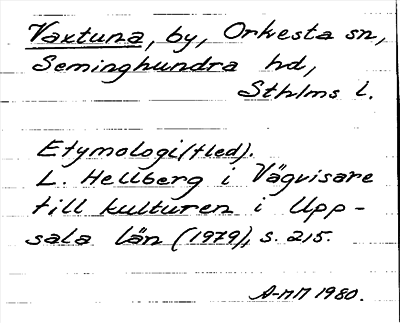 Vaxtuna, by, Orkesta sn,
Seminghundra hd,
Sthlms l.
Etymologi (tled).
L. Hellberg i Vägvisare
till kulturen i Upp-
sala län (1979), s. 215.
A-MM 1980.